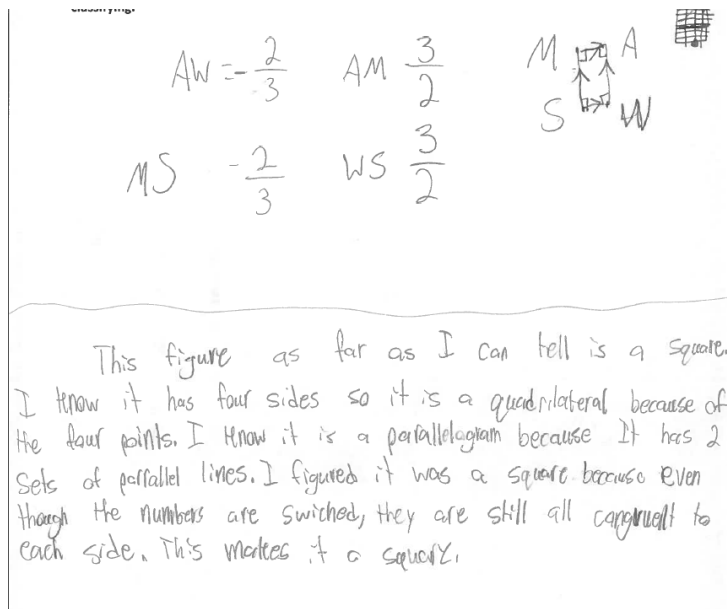 classifying.
AW = -2/3 AM 3/2 M A
S W
MS -2/3 WS 3/2
This figure as far as I can tell is a square.
I know it has four sides so it is a quadrilateral because of
the four points. I know it is a parallelogram because It has 2
Sets of parfallel lines. I figured it was a square because even
though the numbers are swiched, they are still all congruent to
each side. This makes it a square.